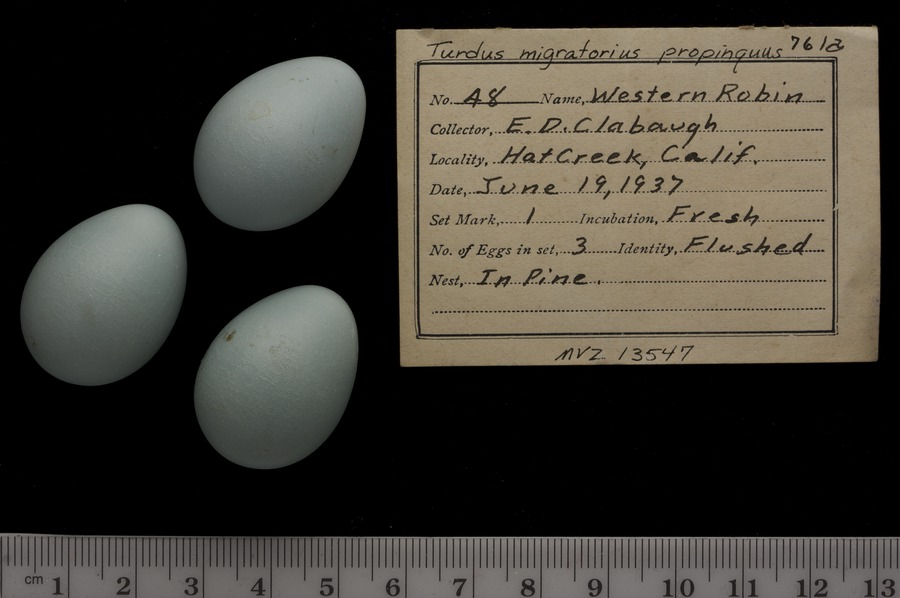 Turdus migratorius propinquus 761a
No. 48 Name, Western Robin
Collector, E. D. Clabaugh
Locality, Hat Creek, Calif.
Date, June 19, 1937
Set Mark, 1 Incubation, Fresh
No. of Eggs in set, 3 Identity, Flushed
Nest, In Pine.
MVZ 13547
cm 1 2 3 4 5 6 7 8 9 10 11 12 13